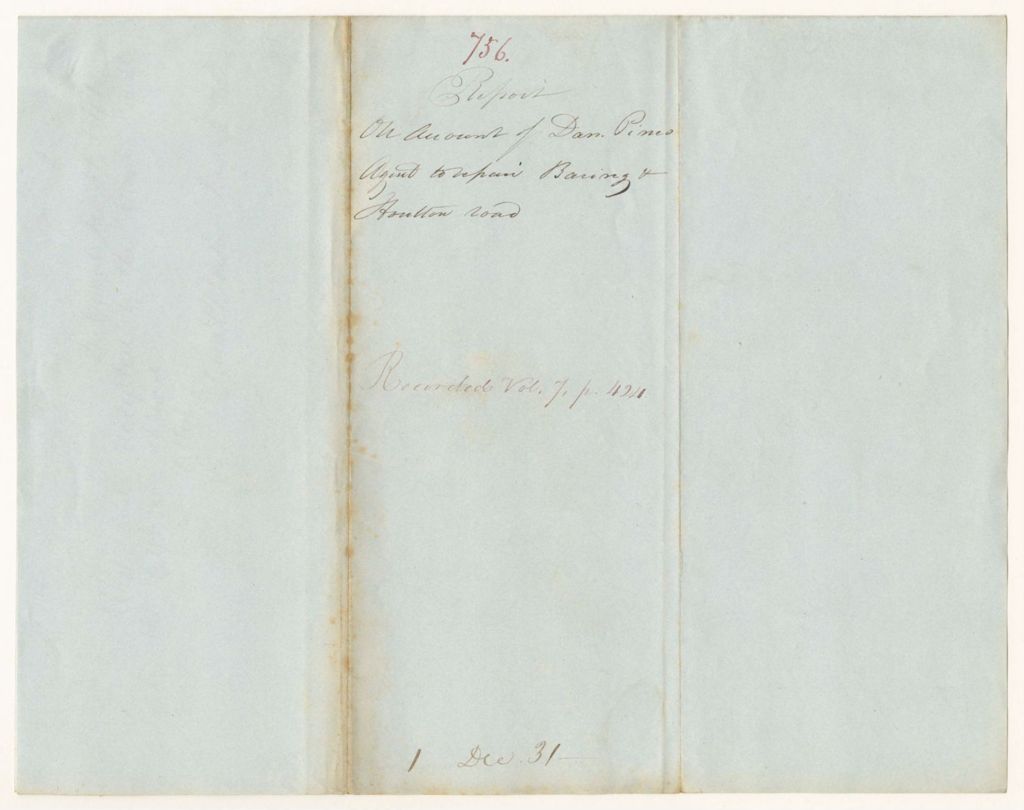 756.
Report
On Account of Dan. Pines
Agent to repair Baring &
Houlton road
Recorded Vol. 7, p. 424
1 Dec. 31